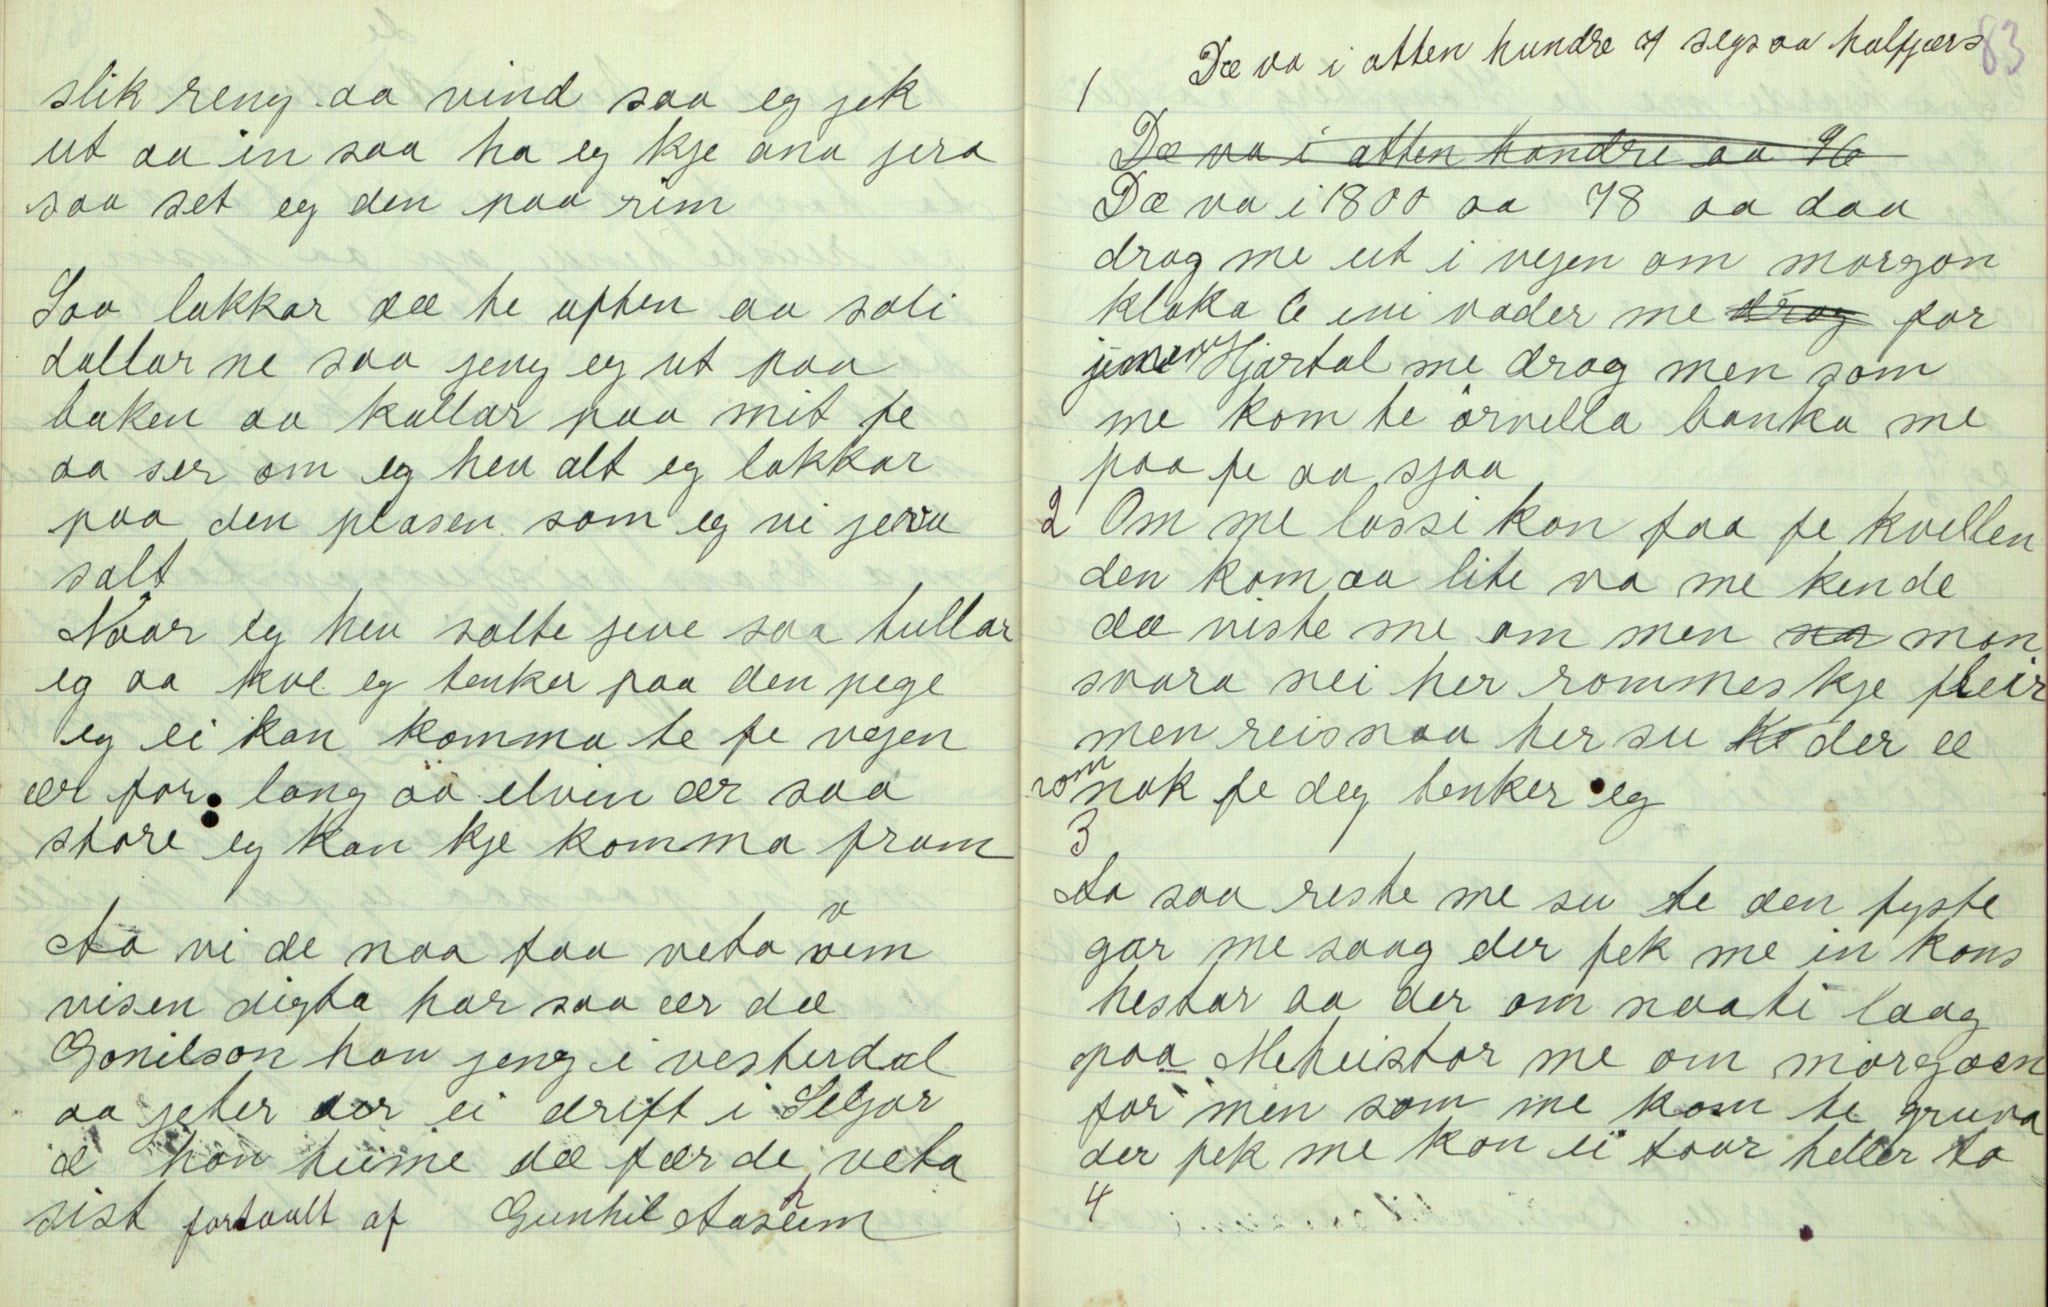 slik reng aa vind saa eg jek
ut aa in saa ha eg kje ana jera
saa set eg den paa rim
Saa lakkar dæ te aften aa soli
dallar ne saa jeng eg ut paa
baken aa kallar paa mit fe
aa ser om eg heu alt eg lokkar
paa den plasen som eg vi jeva
salt
Naar eg heu salte jeve saa tullar
eg aa kve eg tenker paa den pege
eg ei kan komma te fe vejen
ær for lang aa elvin ær saa
store eg kan kje komma fram
Aa vi de naa faa veta vem
visen digta har saa ær dæ
Gonilson han jeng i vesterdal
aa jeter der ei drift i Seljor
æ han heime dæ fær de veta
sist fortaalt af Gunhil Aasheim
83
Dæ va i atten hundre 7 segs aa halfjærs
1
Dæ va i atten hondre aa 76
Dæ va i 1800 aa 78 aa daa
drog me ut i vejen om morgon
kloka 6 eni vader me drog for
jenon Hjartal me drog men som
me kom te örvella banka me
paa fe aa sjaa
2 Om me lossi kon faa fe kvellen
den kom aa lite va me kende
dæ viste me om men na mon
svara nei her rommes kje fleir
men reis naa her su der æ
rom nok fe deg tenker eg
3
Aa saa reste me su te den fyste
gar me saag der fek me in kons
hestar aa der om naati laag
paa Meheistar me om morgoen
for men som me kom te gruva
der fek me kon ei taar heller to
4